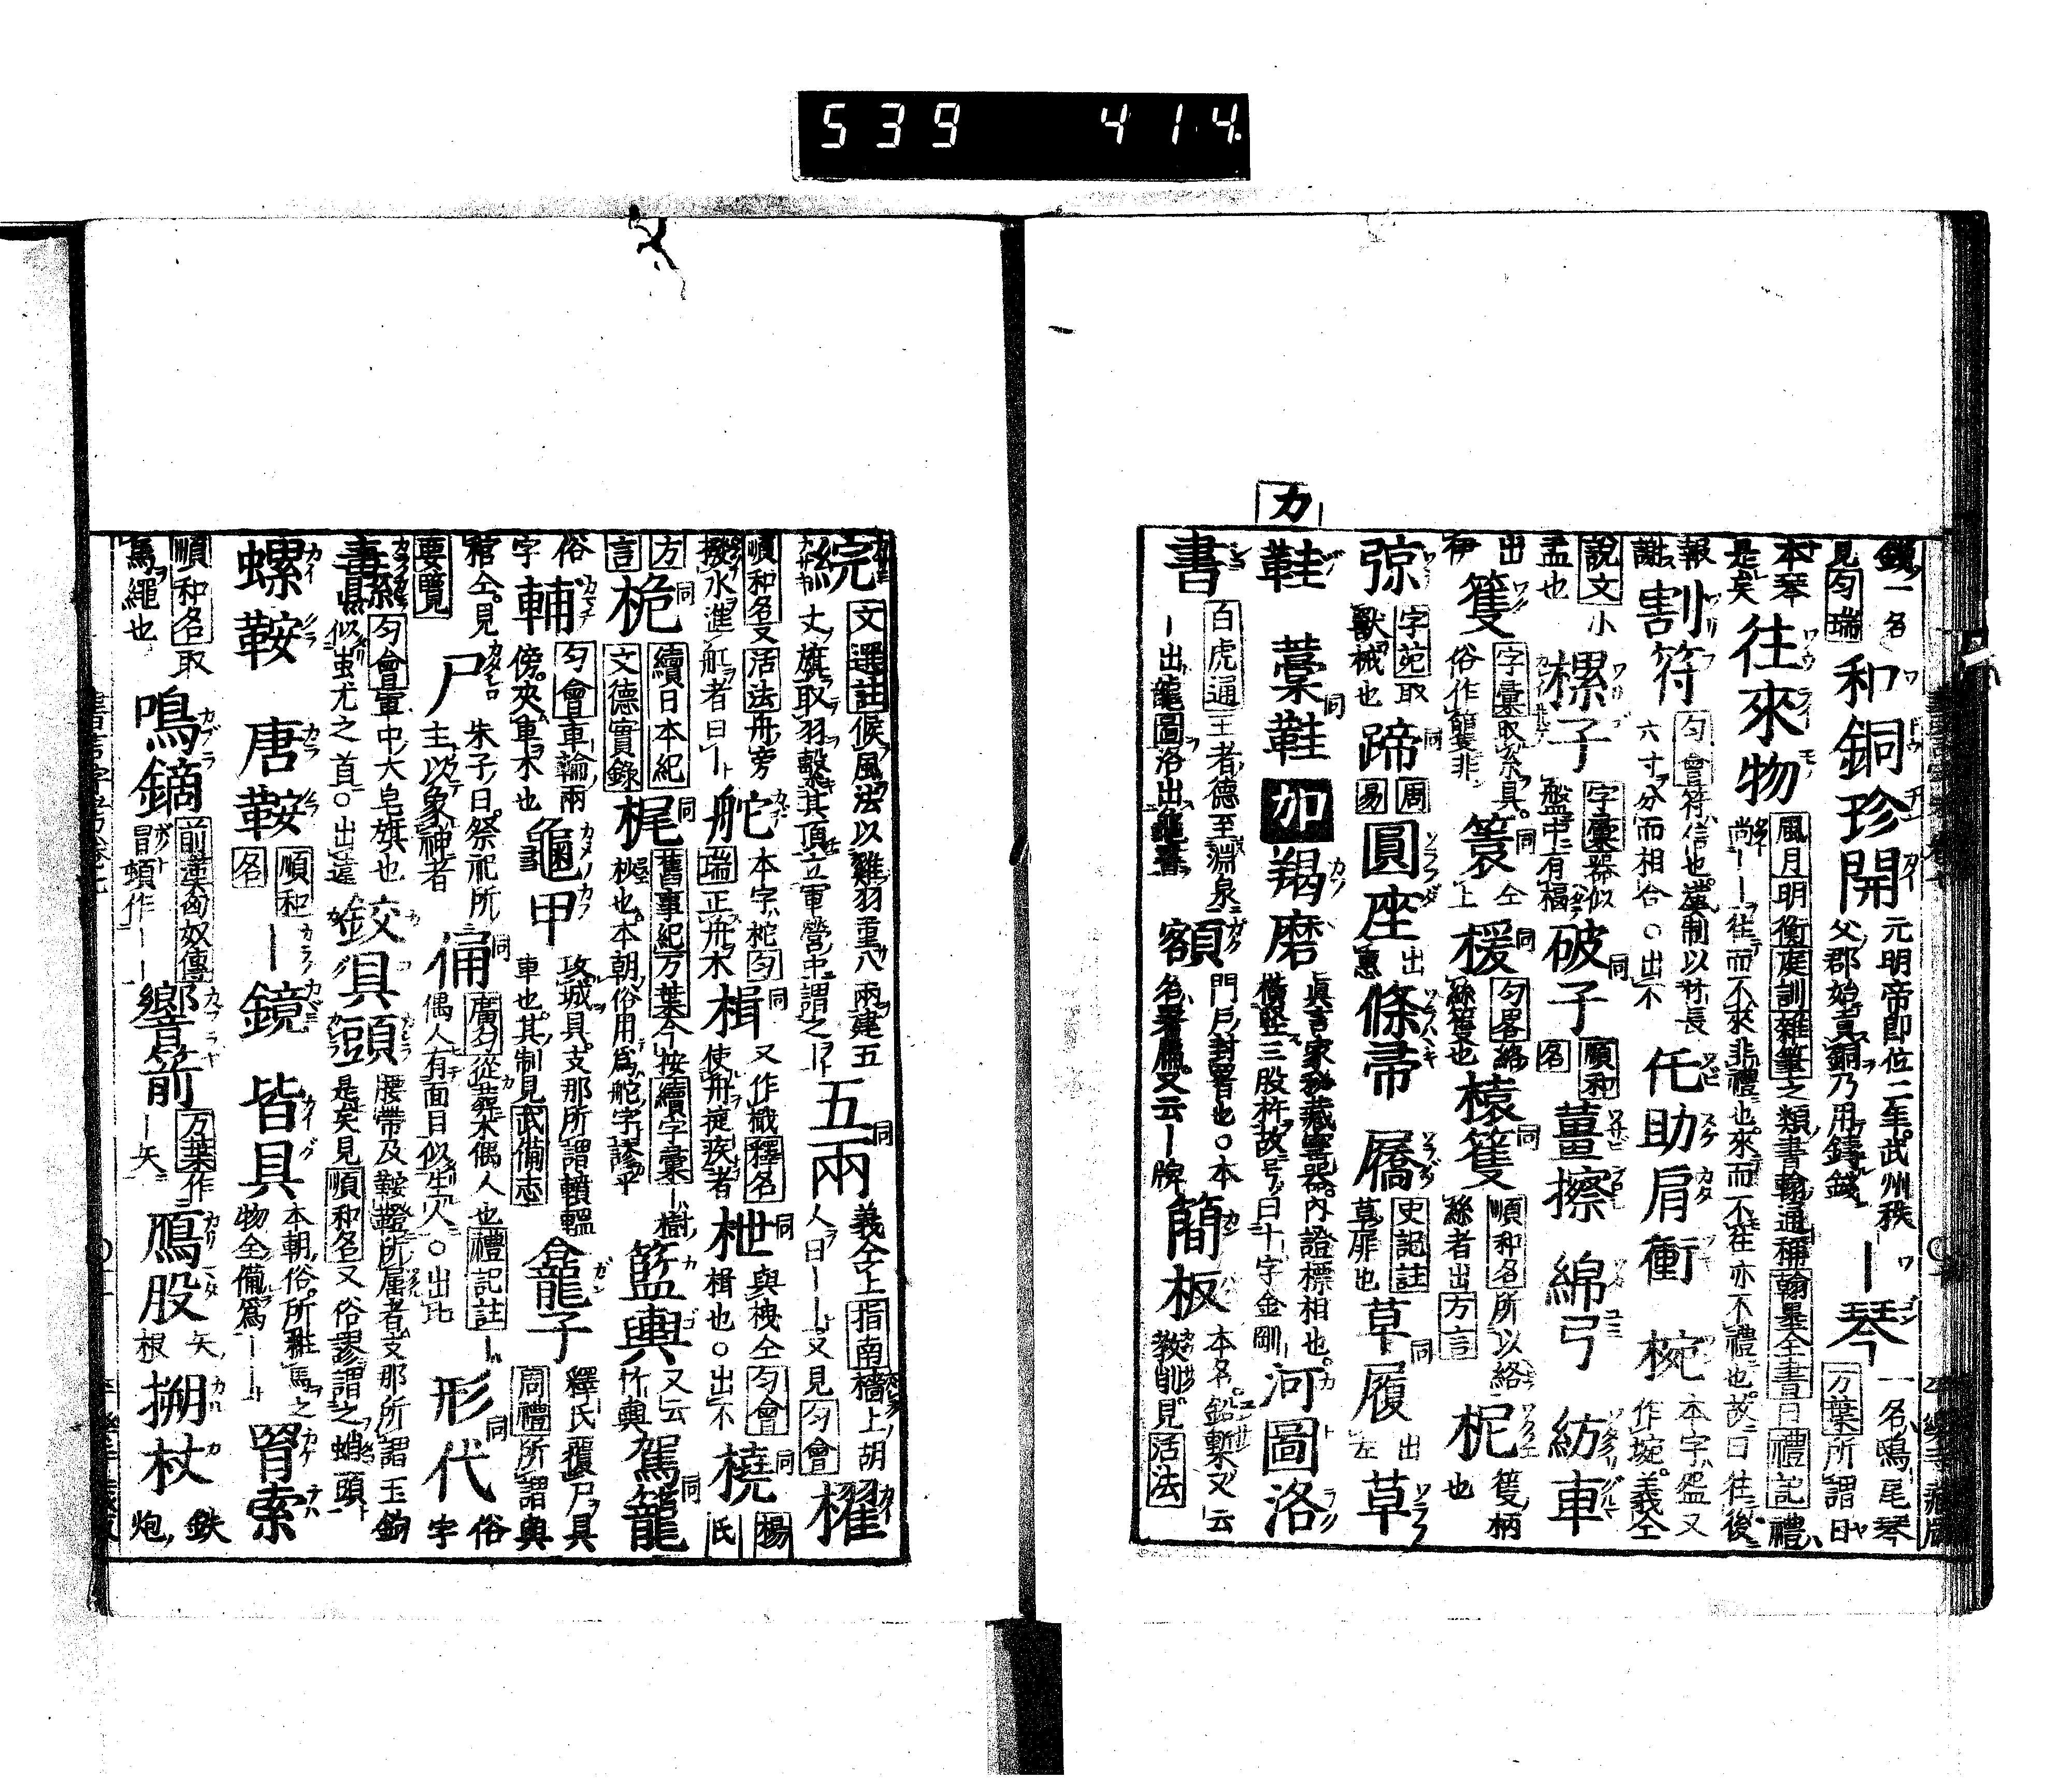 539 414
鎖一名
見匀瑞
和銅珍開 元明帝即位二年武州秩
父郡始貢銅乃用鑄錢
一琴 一名鴟尾琴
万葉所謂日
本琴
是矣
往來物 風月明衡庭訓雜筆之類書翰通稱翰墨全書曰禮記禮
尚——往而不來非禮也來而不往亦不禮也故曰往後
報
謝
割符 匀會符信也漢制以竹長
六寸分而相合○出不
仛助肩衝
椀 本字盌又
作埦義仝
說文小
盂也
樏子 字彙器似
盤中有槅
破子 順和
名
薑擦
綿弓
紡車
出
籰 字彙收絲具
俗作籆非
篗 仝
上
楥 匀畧絡
絲籰也
榬籰 順和名所以絡
絲者出方言
柅 籰柄
也
弶 字苑取
獸械也
蹄 周
易
圓座 出
條帚
屩 史記註
草屝也
草履 出
左
草
鞋
藁鞋
カ
加
羯磨 眞言家秘藏寶器内證標相也
橫竪三股杵故号曰十字金剛
河圖洛
書 白虎通王者德至淵泉
—出龍圖洛出龜書
額 門戶封署也○本
名署扁又云—牌
簡板 本名鉛槧又云
教削見活法
綄 文選註候風法以雞羽重八兩建五
丈旗取羽繫其頂立軍營中謂之—
五兩 義仝上指南檣上胡
人曰——又見匀會
櫂
順和名又活法舟旁
撥水進舡者曰—
舵 本字柁匀
瑞正舟木
楫 又作檝釋名
使舟捷疾者
枻 與栧仝匀會
楫也○出不
橈 楊
氏
方
言
桅 續日本紀
文德實錄
梶 舊事紀万葉今按續字彙—樹
也本朝俗用爲舵字謬乎
籃輿 又云
竹輿
駕籠
俗
字
輔 匀會車輪兩
傍夾車木也
龜甲 攻城具支那所謂轒轀
車也其制見武備志
龕子 釋氏覆尸具
周禮所謂輿
棺仝見
要覽
尸 朱子曰祭祀所
主以象神者
俑 廣匀從葬木偶人也禮記註—
偶人有面目似生人○出比
形代 俗
字
纛 匀會軍中大皂旗也
似蚩尤之首○出遠
鉸具頭 腰帶及鞍鐙所属者支那所謂玉鉤
是矣見順和名又俗謬謂之蛸頭
螺鞍
唐鞍 順和
名
—鏡
皆具 本朝俗所雕馬之
物全備爲——
胷索
順和名取
爲繩也
鳴鏑 前漢匈奴傳
冒頓作——
嚮箭 万葉作
—矢
鴈股 矢
根
搠杖 鉄
炮